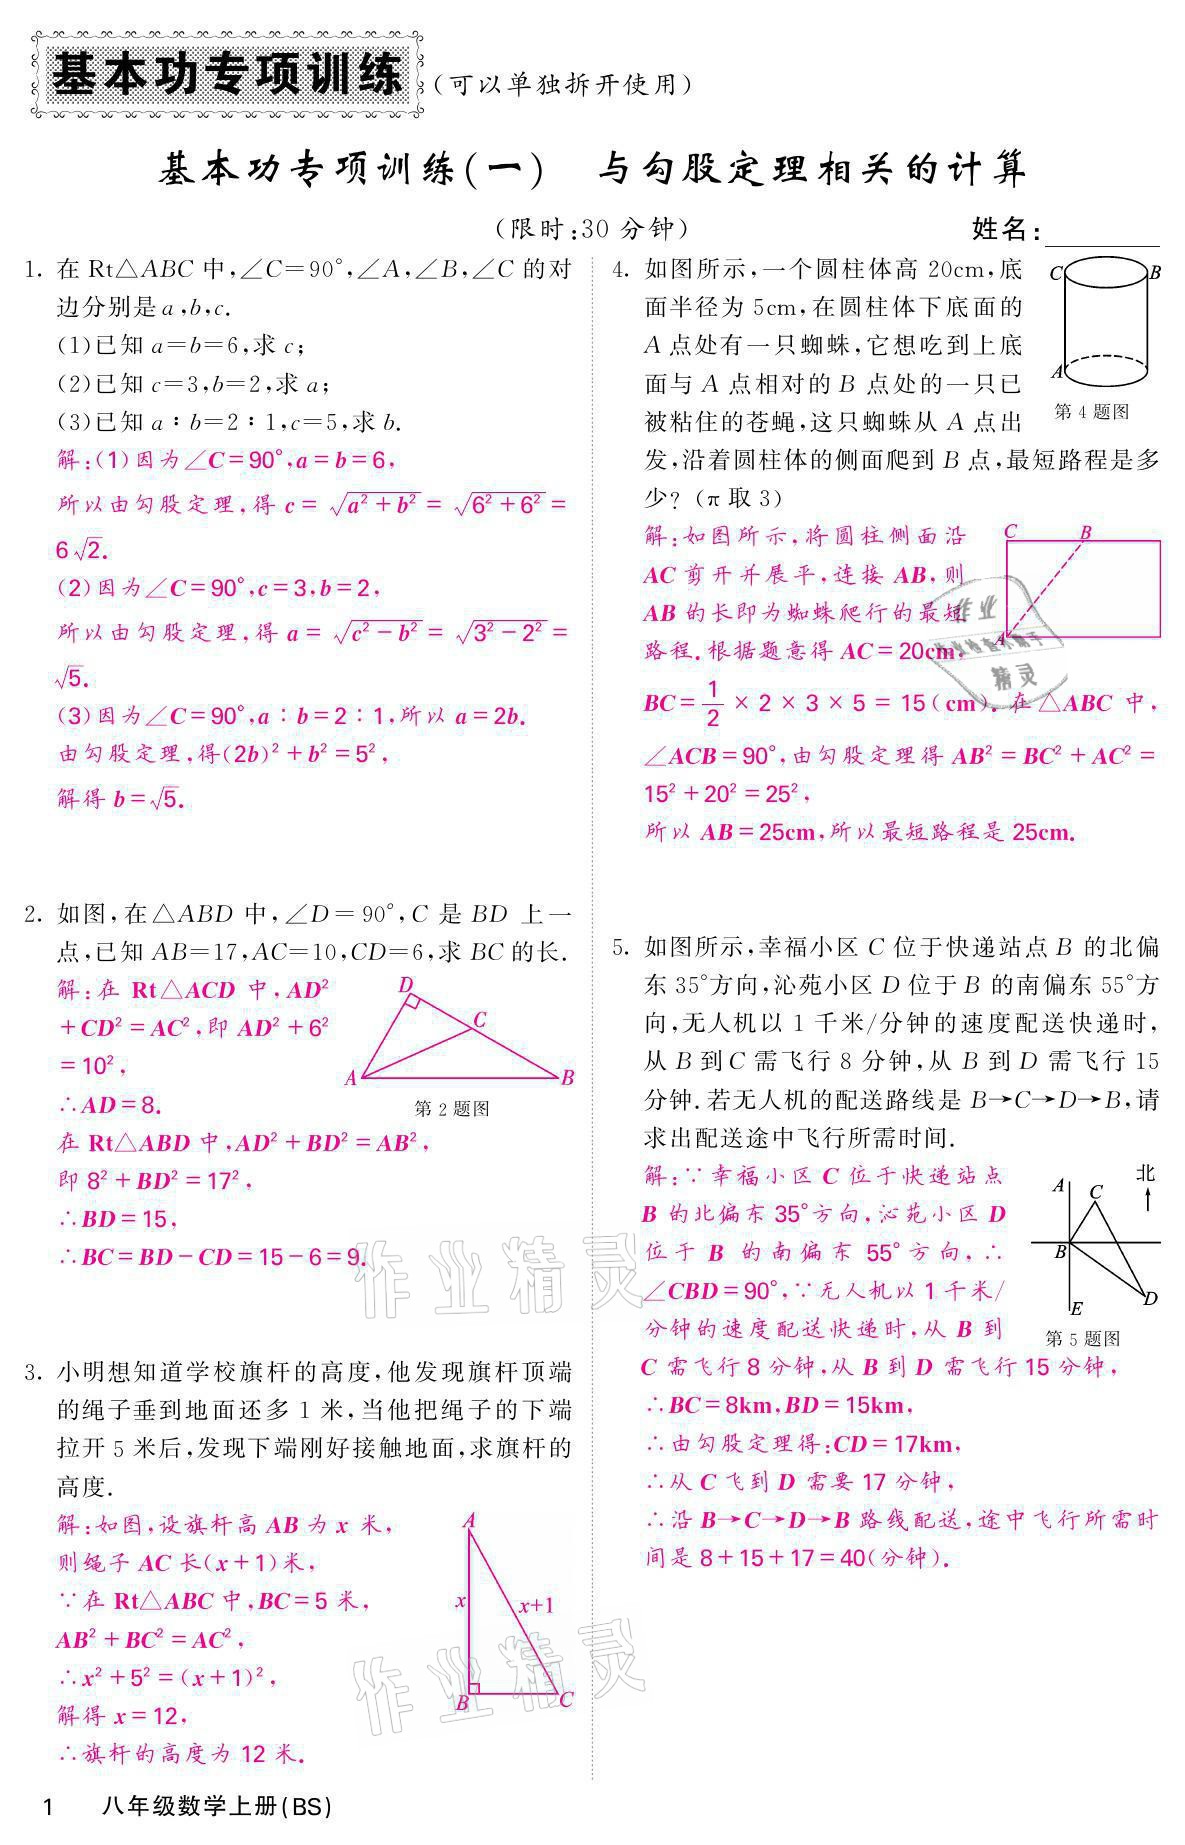 基本功专项训练(可以单独拆开使用)
基本功专项训练(一) 与勾股定理相关的计算
(限时:30分钟) 姓名:
1. 在Rt△ABC中,∠C=90°,∠A,∠B,∠C的对
边分别是a,b,c.
(1)已知a=b=6,求c;
(2)已知c=3,b=2,求a;
(3)已知a∶b=2∶1,c=5,求b.
解:(1)因为∠C=90°,a=b=6,
所以由勾股定理,得c=√(a²+b²)=√(6²+6²)=
6√2.
(2)因为∠C=90°,c=3,b=2,
所以由勾股定理,得a=√(c²-b²)=√(3²-2²)=
√5.
(3)因为∠C=90°,a∶b=2∶1,所以a=2b.
由勾股定理,得(2b)²+b²=5²,
解得b=√5.
2. 如图,在△ABD中,∠D=90°,C是BD上一
点,已知AB=17,AC=10,CD=6,求BC的长.
解:在Rt△ACD中,AD²
+CD²=AC²,即AD²+6²
=10²,
∴AD=8.
在Rt△ABD中,AD²+BD²=AB²,
即8²+BD²=17²,
∴BD=15,
∴BC=BD-CD=15-6=9.
D
C
A
B
第2题图
3. 小明想知道学校旗杆的高度,他发现旗杆顶端
的绳子垂到地面还多1米,当他把绳子的下端
拉开5米后,发现下端刚好接触地面,求旗杆的
高度.
解:如图,设旗杆高AB为x米,
则绳子AC长(x+1)米,
∵在Rt△ABC中,BC=5米,
AB²+BC²=AC²,
∴x²+5²=(x+1)²,
解得x=12,
∴旗杆的高度为12米.
A
x
x+1
B
C
4. 如图所示,一个圆柱体高20cm,底
面半径为5cm,在圆柱体下底面的
A点处有一只蜘蛛,它想吃到上底
面与A点相对的B点处的一只已
被粘住的苍蝇,这只蜘蛛从A点出
发,沿着圆柱体的侧面爬到B点,最短路程是多
少?(π取3)
C
B
A
第4题图
解:如图所示,将圆柱侧面沿
AC剪开并展平,连接AB,则
AB的长即为蜘蛛爬行的最短
路程.根据题意得AC=20cm,
BC=1/2×2×3×5=15(cm).在△ABC中,
∠ACB=90°,由勾股定理得AB²=BC²+AC²=
15²+20²=25²,
所以AB=25cm,所以最短路程是25cm.
C
B
A
5. 如图所示,幸福小区C位于快递站点B的北偏
东35°方向,沁苑小区D位于B的南偏东55°方
向,无人机以1千米/分钟的速度配送快递时,
从B到C需飞行8分钟,从B到D需飞行15
分钟.若无人机的配送路线是B→C→D→B,请
求出配送途中飞行所需时间.
解:∵幸福小区C位于快递站点
B的北偏东35°方向,沁苑小区D
位于B的南偏东55°方向,∴
∠CBD=90°,∵无人机以1千米/
分钟的速度配送快递时,从B到
C需飞行8分钟,从B到D需飞行15分钟,
∴BC=8km,BD=15km,
∴由勾股定理得:CD=17km,
∴从C飞到D需要17分钟,
∴沿B→C→D→B路线配送,途中飞行所需时
间是8+15+17=40(分钟).
A
C
北
B
D
E
第5题图
作业精灵
作业精灵
作业
精灵
1 八年级数学上册(BS)